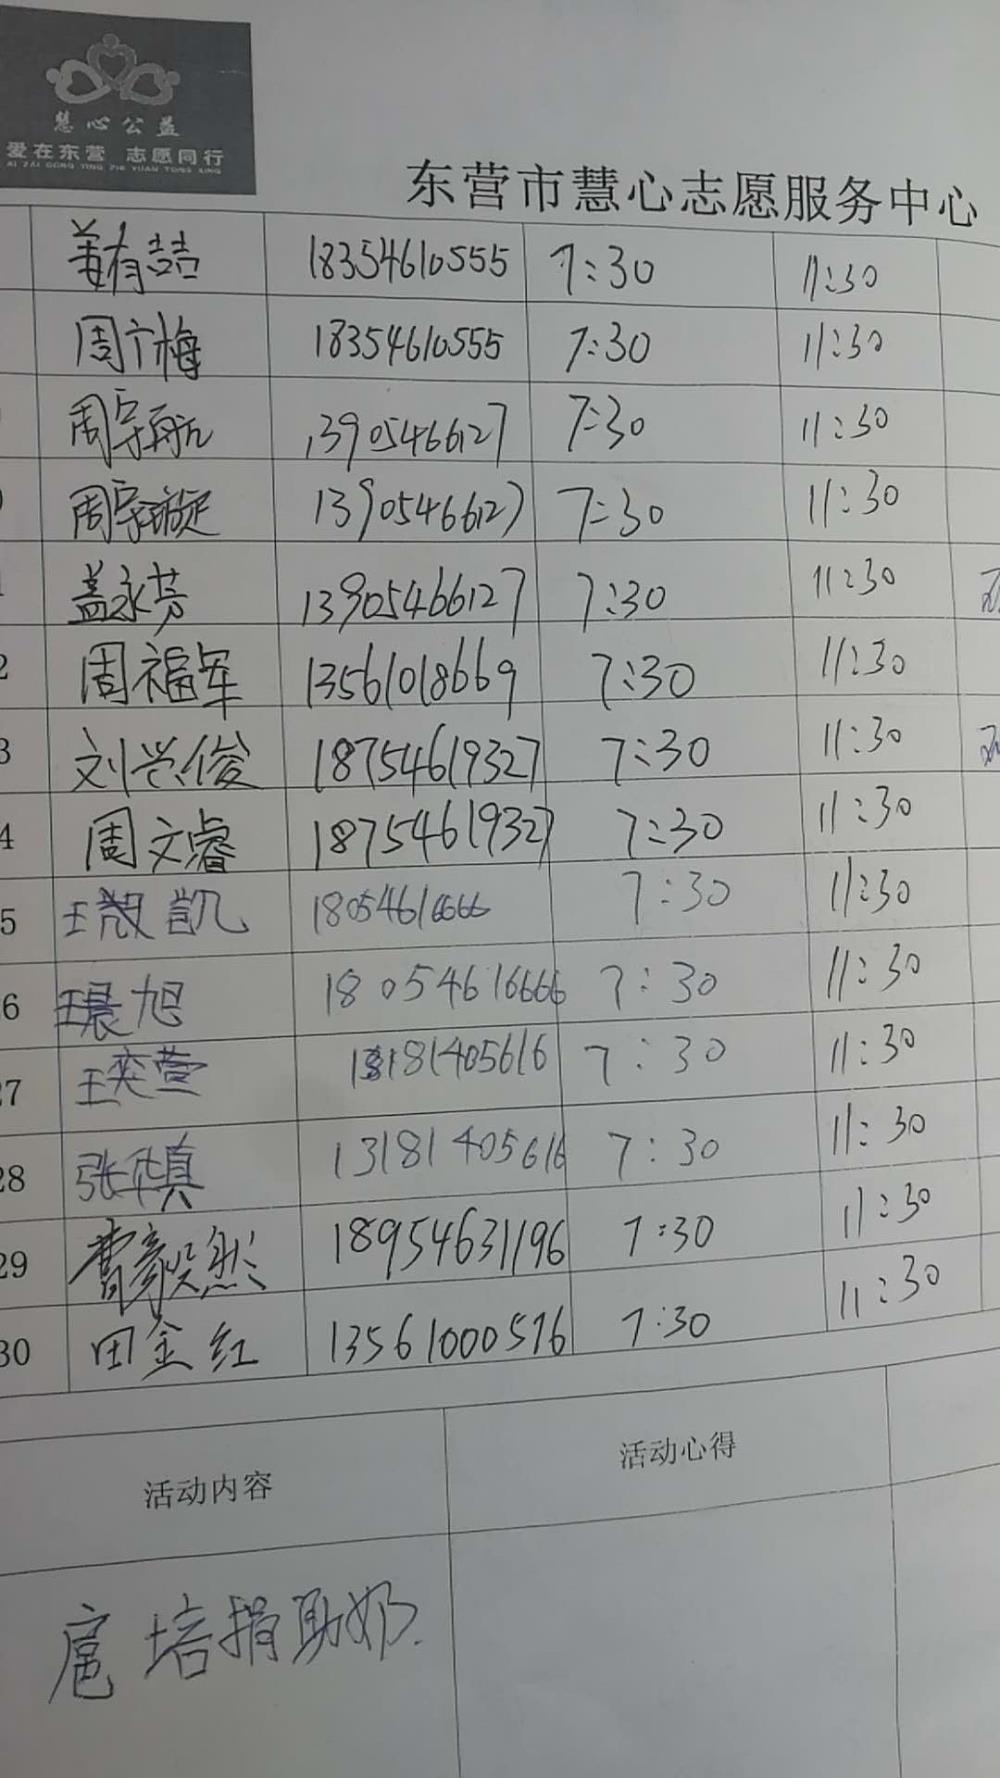 慧心公益
爱在东营 志愿同行
AI ZAI DONG YING ZHI YUAN TONG XING
东营市慧心志愿服务中心
姜有喆 18354610555 7:30 11:30
周广梅 18354610555 7:30 11:30
周宇航 13905466127 7:30 11:30
周宇璇 13905466127 7:30 11:30
盖永芳 13905466127 7:30 11:30
2 周福军 13561018669 7:30 11:30
3 刘兴俊 18754619327 7:30 11:30
4 周文睿 18754619327 7:30 11:30
5 王 凯 18054616666 7:30 11:30
6 王晨旭 18054616666 7:30 11:30
27 王奕萱 13181405616 7:30 11:30
28 张 真 13181405616 7:30 11:30
29 曹毅然 18954631196 7:30 11:30
30 田金红 13561000576 7:30 11:30
活动内容 活动心得
扈培捐助奶.